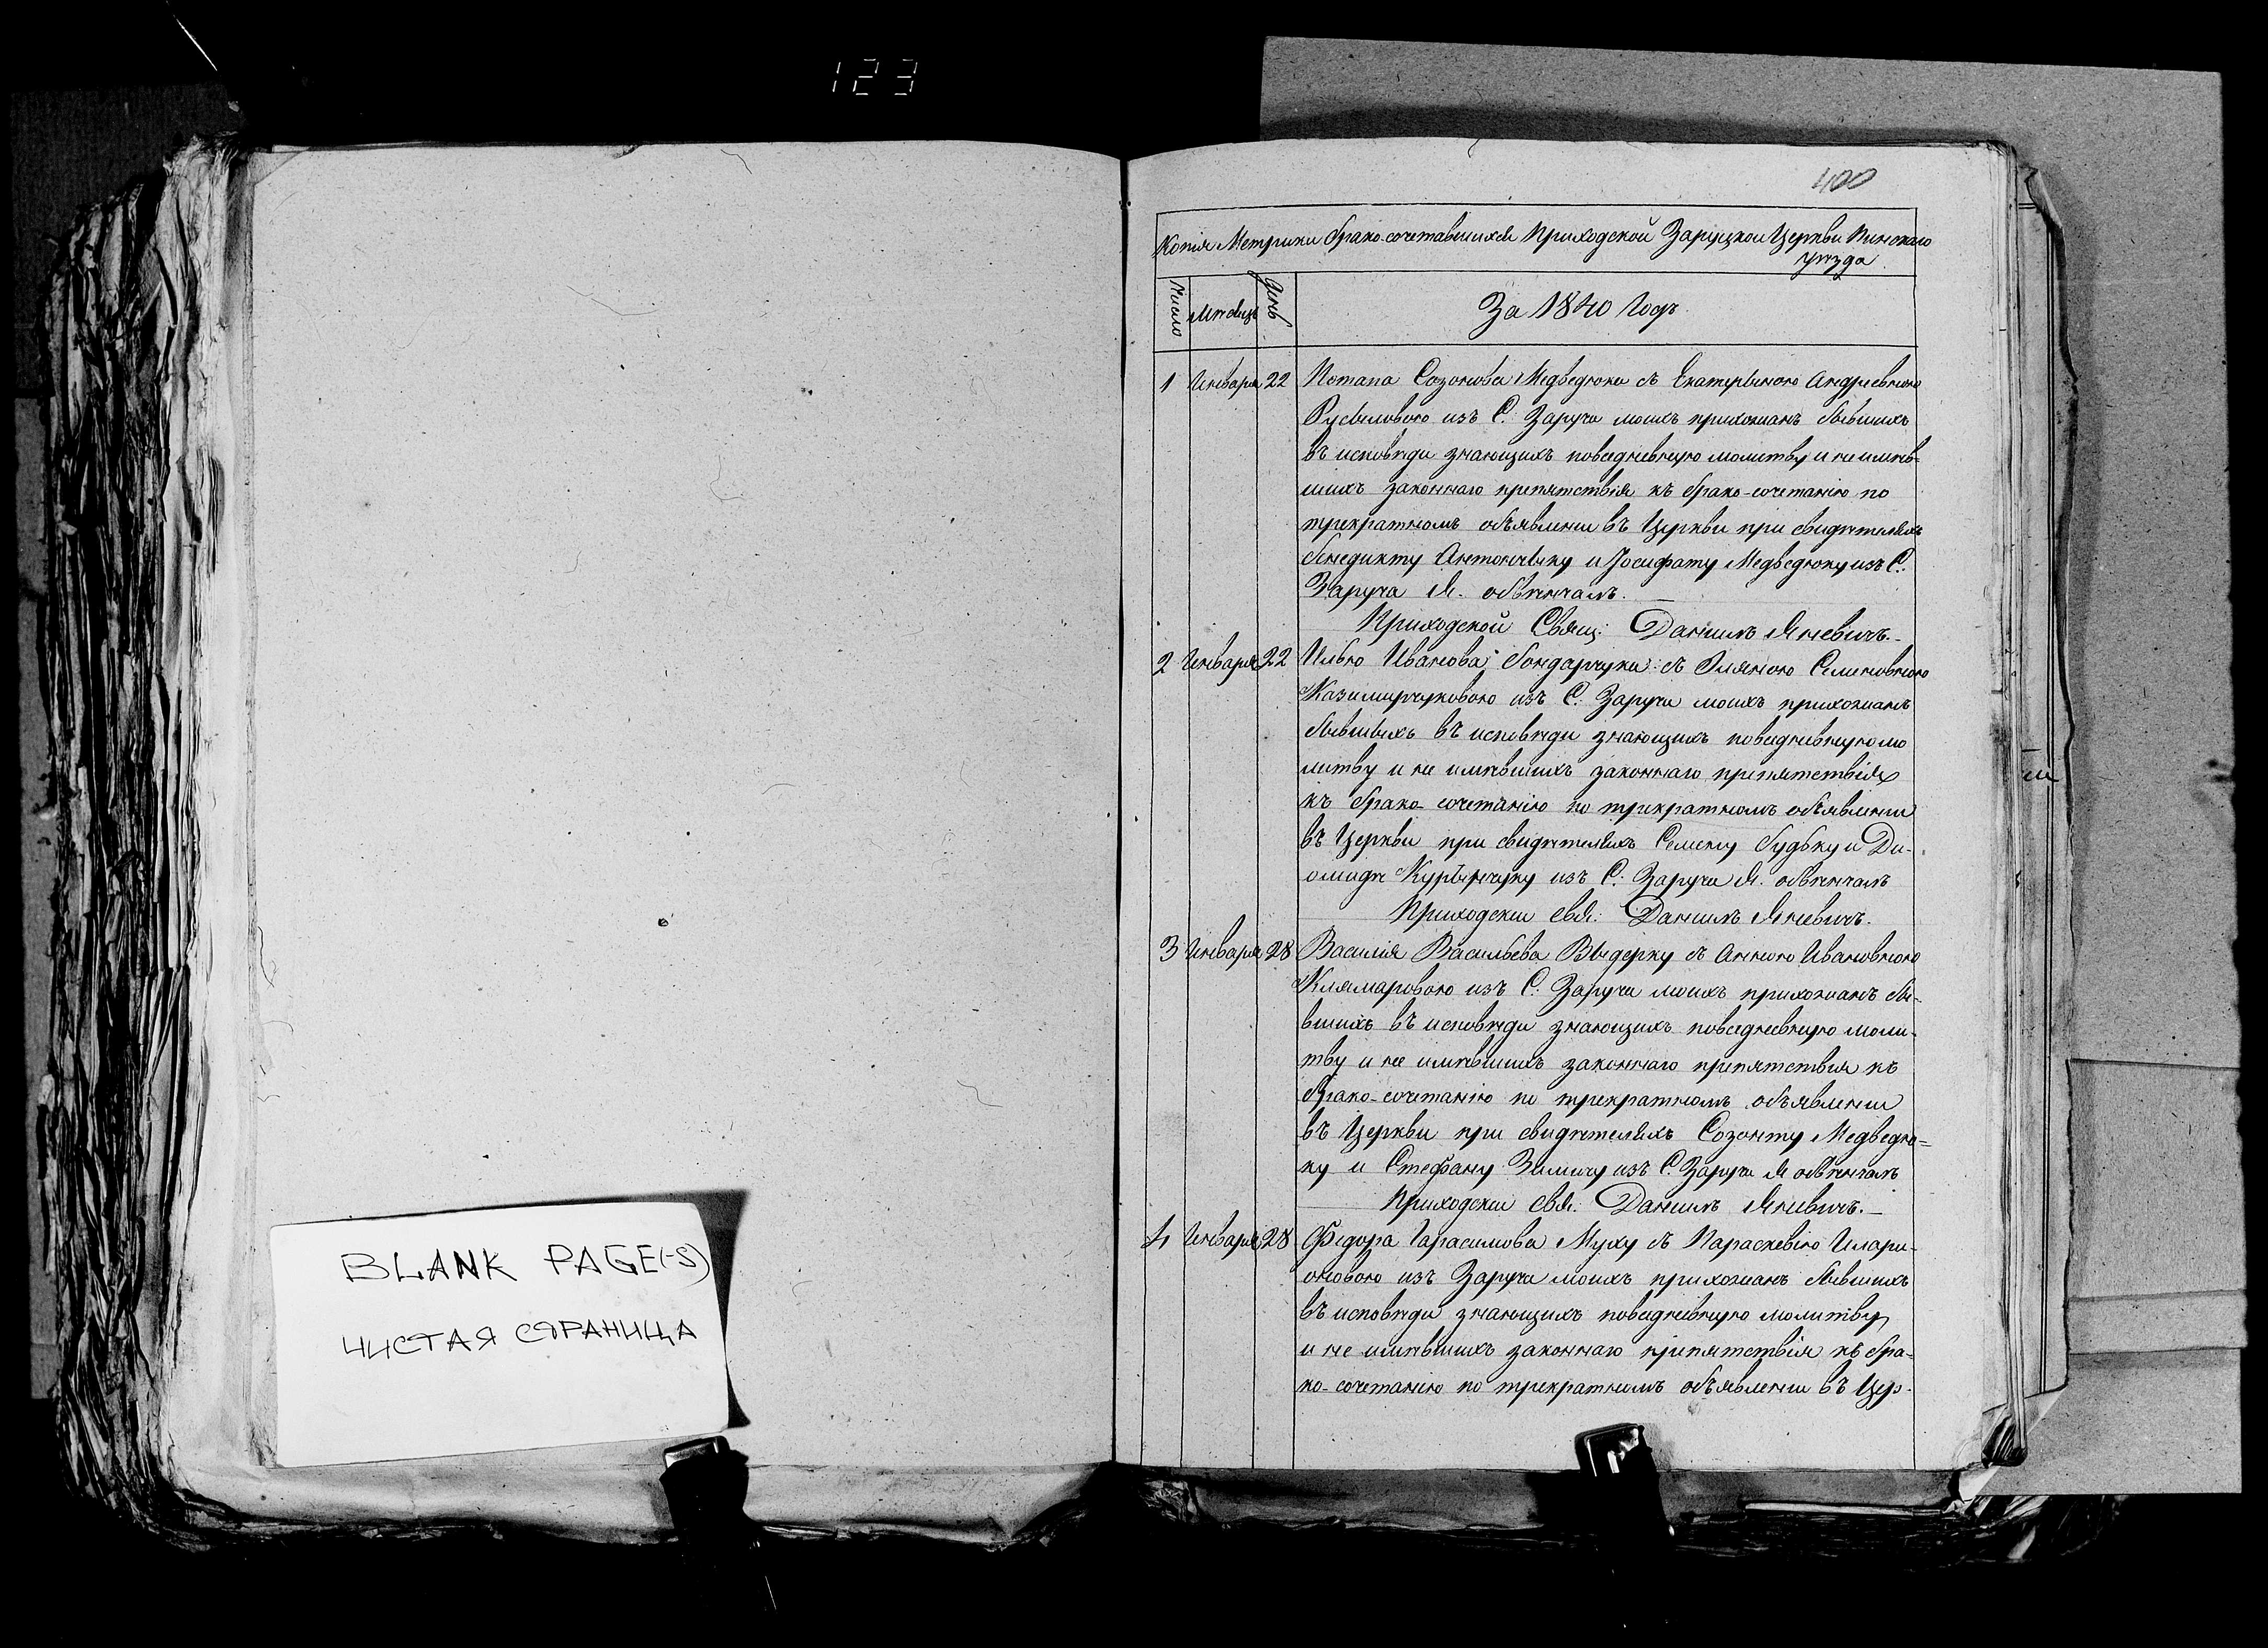 123
400
Копія Метрики брако-сочетавшихся Приходской Заруцкой Церкви Пинскаго
уезда
Число
Месяцъ
День
За 1840 Годъ
1 Января 22 Потапа Созонова Медведюка съ Екатерыною Андреевною
Русыловою изъ С: Заруча моихъ прихожанъ бывшихъ
въ исповѣди знающихъ повседневную молитву и не имѣв-
шихъ законнаго препятствія къ брако-сочетанію по
трекратномъ объявленіи въ Церкви при свидѣтеляхъ
Бенедикту Антончыку и Іосифату Медведюку изъ С.
Заруча Я. обвѣнчалъ.
Приходской Свящ: Даніилъ Яневичъ.
2 Января 22 Илью Иванова Бондарчука съ Уляною Семеновною
Казимирчуковою изъ С: Заруча моихъ прихожанъ
бывшыхъ въ исповѣди знающихъ повседневную мо
литву и не имѣвшихъ законнаго препятствія
къ брако-сочетанію по трикратномъ объявленіи
въ Церкви при свидѣтеляхъ Семену Будьку и Ди-
омидѣ Курынчуку изъ С: Заруча Я. обвѣнчалъ
Приходскіи свя: Даніилъ Яневичъ.
3 Января 28 Василія Васильева Выдерку съ Анною Ивановною
Клямаровою изъ С: Заруча моихъ прихожанъ бы-
вшихъ въ исповѣди знающихъ повседневную моли-
тву и не имѣвшихъ законнаго препятствія къ
брако-сочетанію по трекратномъ объявленіи
въ Церкви при свидѣтеляхъ Созонту Медведю-
ку и Стефану Зиличу изъ С. Заруча Я обвѣнчалъ
Приходскіи свя. Даніилъ Яневичъ.
4 Января 28 Федора Гарасимова Муху съ Параскевію Илари-
оновою изъ Заруча моихъ прихожанъ бывшихъ
въ исповѣди знающихъ повседневную молитву
и не имѣвшихъ законнаго препятствія къ бра-
ко-сочетанію по трекратномъ объявленіи въ Цер-
BLANK PAGE(-S)
ЧИСТАЯ СТРАНИЦА